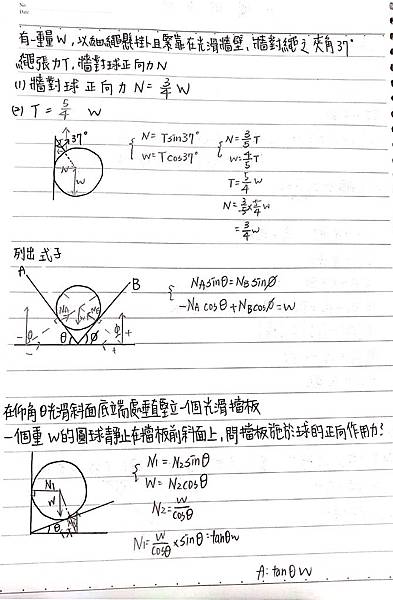 No.
Date
有一重量W,以細繩懸掛且緊靠在光滑牆壁,牆對繩之夾角37°
繩張力T,牆對球正向力N
(1) 牆對球正向力 N = 3/4 W
(2) T = 5/4 W
37°
N
W
{ N = Tsin37°
W = Tcos37°
{ N = 3/5 T
W = 4/5 T
T = 5/4 W
N = 3/5 × 5/4 W
= 3/4 W
列出式子
A
B
NA
NB
W
θ
θ
φ
φ
-
-
+
+
{ NA sinθ = NB sinφ
-NA cosθ + NB cosφ = W
在仰角θ光滑斜面底端處垂直豎立一個光滑擋板
一個重W的圓球靜止在擋板前斜面上,問擋板施於球的正向作用力?
N1
W
N2
θ
{ N1 = N2 sinθ
W = N2 cosθ
N2 = W/cosθ
N1 = W/cosθ × sinθ = tanθW
A: tanθ W